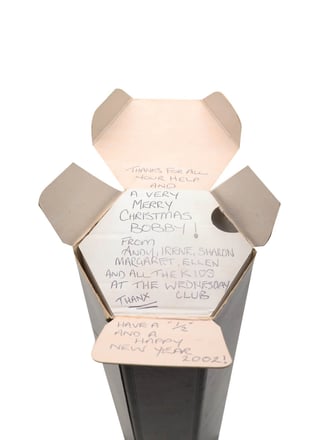 THANKS FOR ALL
YOUR HELP
AND
A VERY
MERRY
CHRISTMAS
BOBBY!
FROM
ANDY, IRENE, SHARON
MARGARET, ELLEN
AND ALL THE KIDS
AT THE WEDNESDAY
THANX CLUB
HAVE A "1/2"
AND A
HAPPY
NEW YEAR
2002!